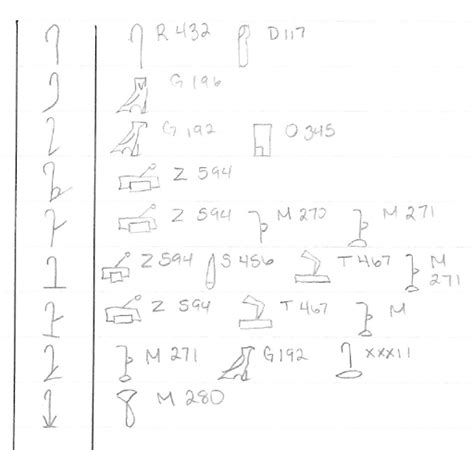 R 432 D 117
G 196
G 192 O 345
Z 594
Z 594 M 270 M 271
Z 594 S 456 T 467 M 271
Z 594 T 467 M
M 271 G 192 XXXII
M 280